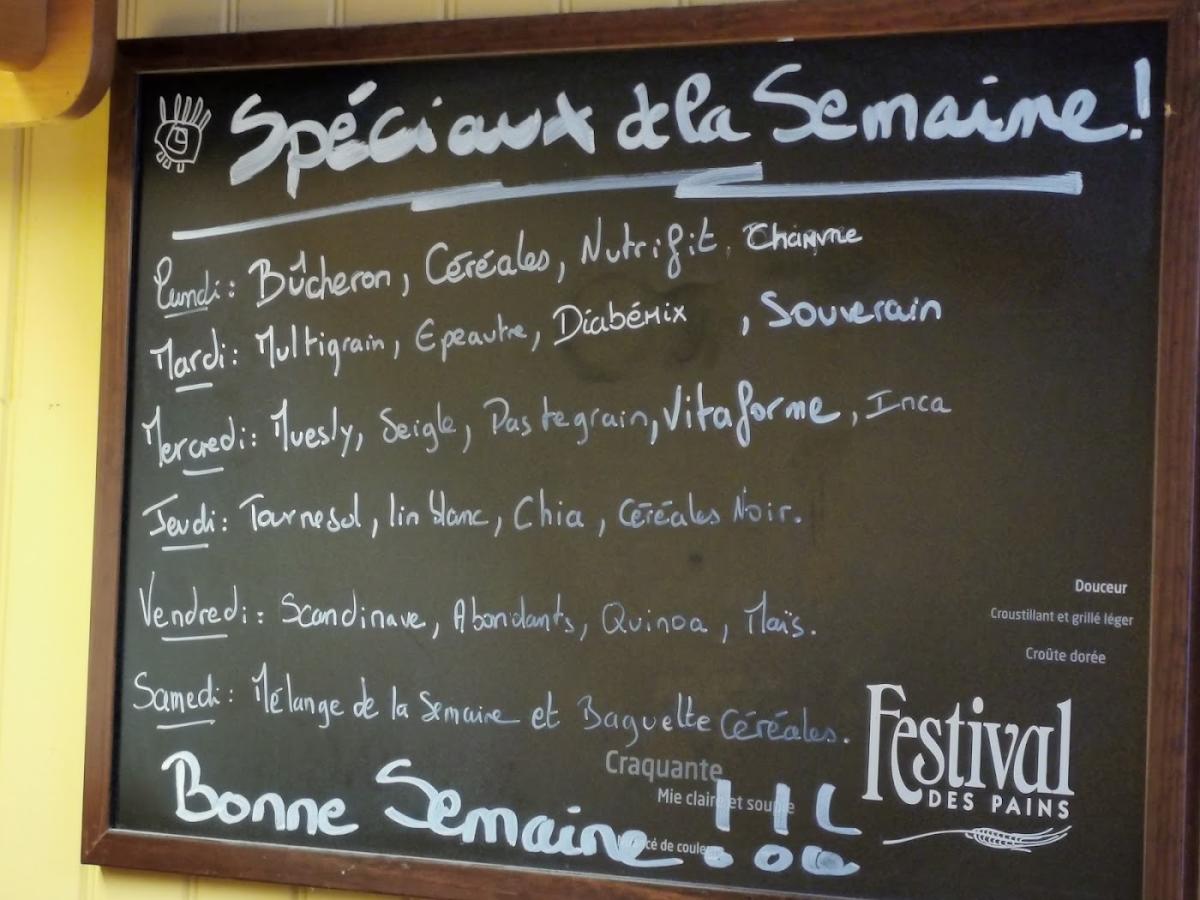 Spéciaux de la Semaine!
Lundi: Bûcheron, Céréales, Nutrifit, Chanvre
Mardi: Multigrain, Epeautre, Diabémix, Souverain
Mercredi: Muesly, Seigle, Pastegrain, Vitaforme, Inca
Jeudi: Tournesol, lin blanc, Chia, Céréales Noir.
Vendredi: Scandinave, Abondants, Quinoa, Maïs.
Samedi: Mélange de la Semaine et Baguette Céréales.
Bonne Semaine !!!
Douceur
Croustillant et grillé léger
Croûte dorée
Craquante
Mie claire et souple
cé de couleu
Festival
DES PAINS